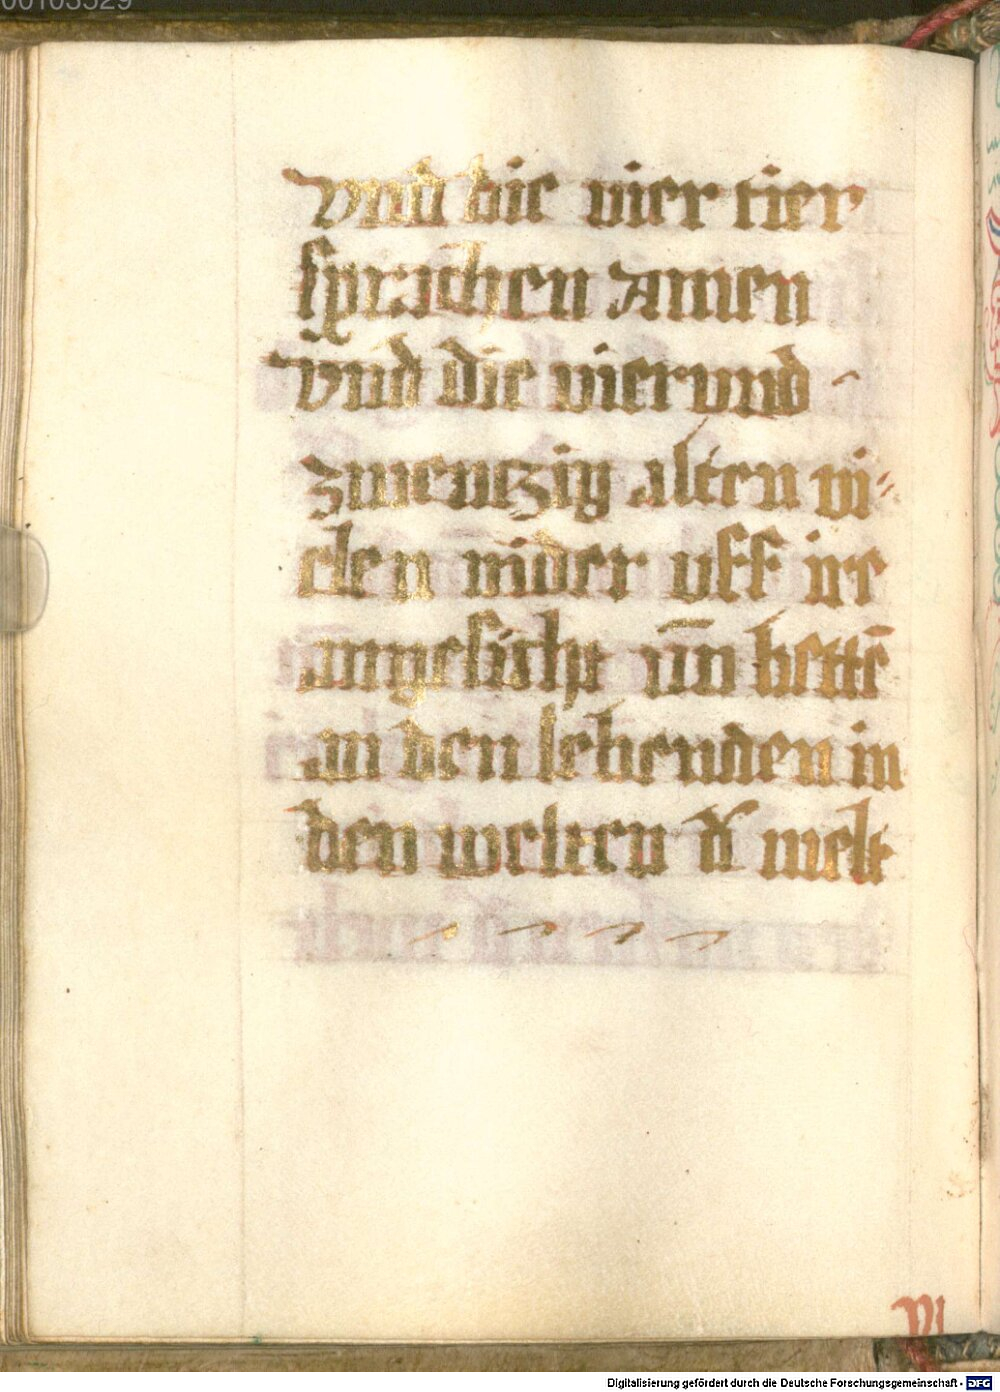 00103529
vnd die vier tier
sprachen Amen
vnd die vierund
zwentzig alten vi⸗
elen nider uff ire
angesicht uñ bettē
an den lebenden in
den welten d̓ welt
VI
Digitalisierung gefördert durch die Deutsche Forschungsgemeinschaft - DFG